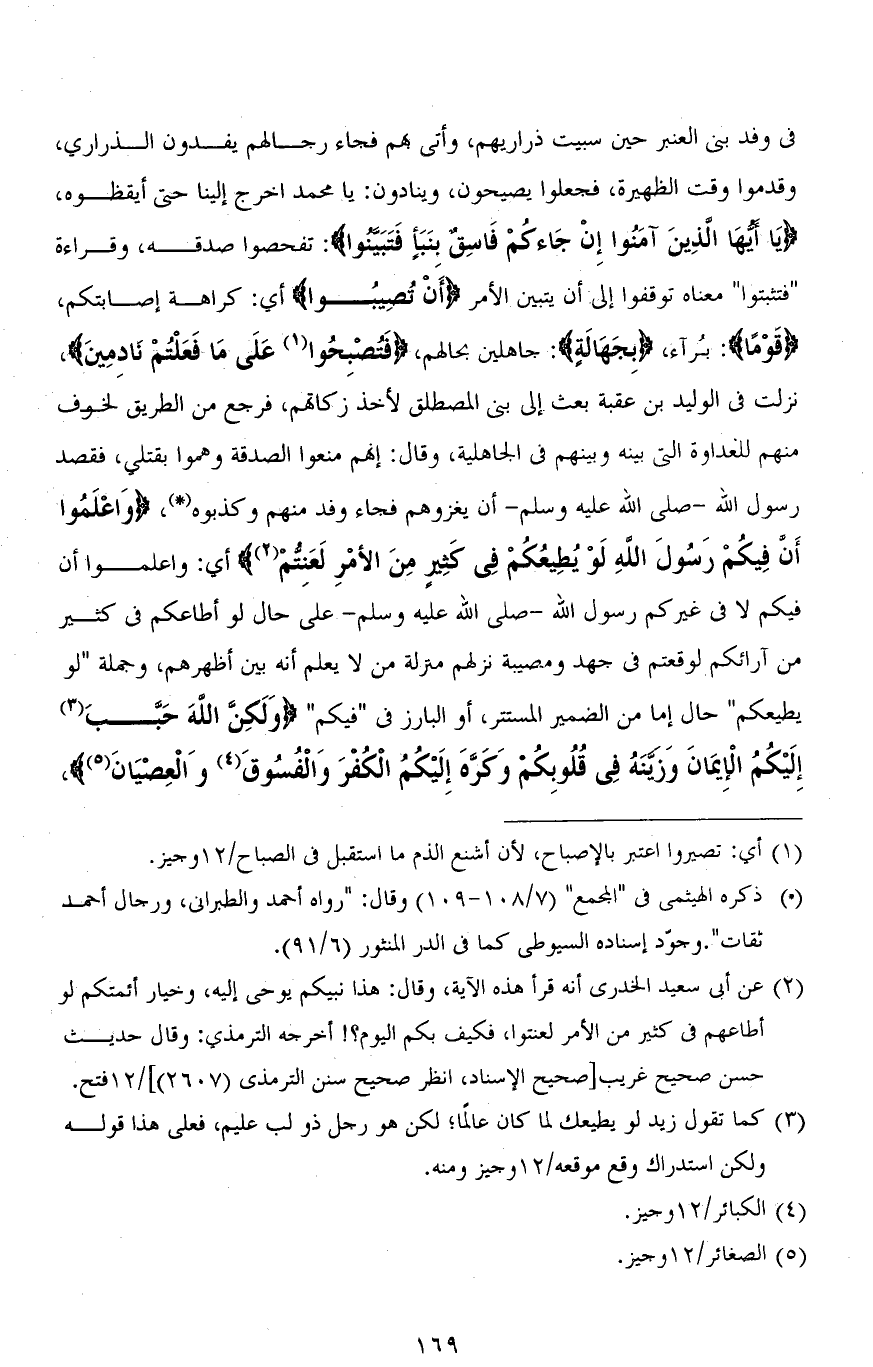 فى وفد بنى العنبر حين سبيت ذراريهم، وأتى بهم فجاء رجالهم يفدون الذراري،
وقدموا وقت الظهيرة، فجعلوا يصيحون، وينادون: يا محمد اخرج إلينا حتى أيقظوه،
﴿يَا أَيُّهَا الَّذِينَ آمَنُوا إِنْ جَاءكُمْ فَاسِقٌ بِنَبَأٍ فَتَبَيَّنُوا﴾: تفحصوا صدقه، وقراءة
"فتثبتوا" معناه توقفوا إلى أن يتبين الأمر ﴿أَنْ تُصِيبُوا﴾ أي: كراهة إصابتكم،
﴿قَوْمًا﴾: بُرآء، ﴿بِجَهَالَةٍ﴾: جاهلين بحالهم، ﴿فَتُصْبِحُوا(١) عَلَى مَا فَعَلْتُمْ نَادِمِينَ﴾،
نزلت فى الوليد بن عقبة بعث إلى بنى المصطلق لأخذ زكاتهم، فرجع من الطريق لخوف
منهم للعداوة التى بينه وبينهم فى الجاهلية، وقال: إنهم منعوا الصدقة وهموا بقتلي، فقصد
رسول الله -صلى الله عليه وسلم- أن يغزوهم فجاء وفد منهم وكذبوه(*)، ﴿وَاعْلَمُوا
أَنَّ فِيكُمْ رَسُولَ اللَّهِ لَوْ يُطِيعُكُمْ فِى كَثِيرٍ مِنَ الأمْرِ لَعَنِتُّمْ(٢)﴾ أي: واعلموا أن
فيكم لا فى غيركم رسول الله -صلى الله عليه وسلم- على حال لو أطاعكم فى كثير
من آرائكم لوقعتم فى جهد ومصيبة نزلهم منزلة من لا يعلم أنه بين أظهرهم، وجملة "لو
يطيعكم" حال إما من الضمير المستتر، أو البارز فى "فيكم" ﴿وَلَكِنَّ اللَّهَ حَبَّبَ(٣)
إِلَيْكُمُ الْإِيمَانَ وَزَيَّنَهُ فِى قُلُوبِكُمْ وَكَرَّهَ إِلَيْكُمُ الْكُفْرَ وَالْفُسُوقَ(٤) وَالْعِصْيَانَ(٥)﴾،
(١) أي: تصيروا اعتبر بالإصباح، لأن أشنع الذم ما استقبل فى الصباح/١٢وجيز.
(*) ذكره الهيثمى فى "المجمع" (١٠٨/٧-١٠٩) وقال: "رواه أحمد والطبرانى، ورجال أحمد
ثقات".وجوّد إسناده السيوطى كما فى الدر المنثور (٩١/٦).
(٢) عن أبى سعيد الخدرى أنه قرأ هذه الآية، وقال: هذا نبيكم يوحى إليه، وخيار أئمتكم لو
أطاعهم فى كثير من الأمر لعنتوا، فكيف بكم اليوم؟! أخرجه الترمذي: وقال حديث
حسن صحيح غريب[صحيح الإسناد، انظر صحيح سنن الترمذى (٢٦٠٧)]/١٢فتح.
(٣) كما تقول زيد لو يطيعك لما كان عالمًا؛ لكن هو رجل ذو لب عليم، فعلى هذا قوله
ولكن استدراك وقع موقعه/١٢وجيز ومنه.
(٤) الكبائر/١٢وجيز.
(٥) الصغائر/١٢وجيز.
١٦٩